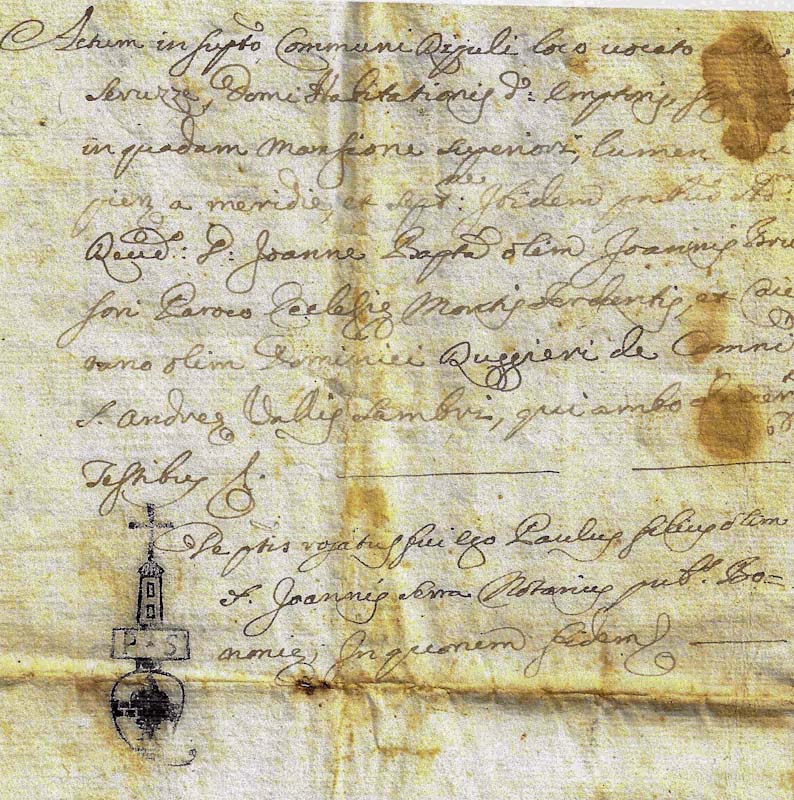 Actum in supto Communi Rijuli loco vocato alle
Seruzze, Domi Habitationis d: Emptoris,
in quadam Mansione superiori, lumen
pienz a meridie, et sept: Ibidem pntibus Adm
Revdo: D: Joanne Bapta olim Joannis Bru
sori Paroco Ecclesie Montis Ardentis, et
vano olim Dominici Ruggieri de Comni
S. Andree Vallis Sambri, qui ambo
Testibus &.
De pttis rogatus fui ego Paulus filius olim
D. Joannis Serra Notarius pub. Bo=
nonie, In quorum fidem
P S